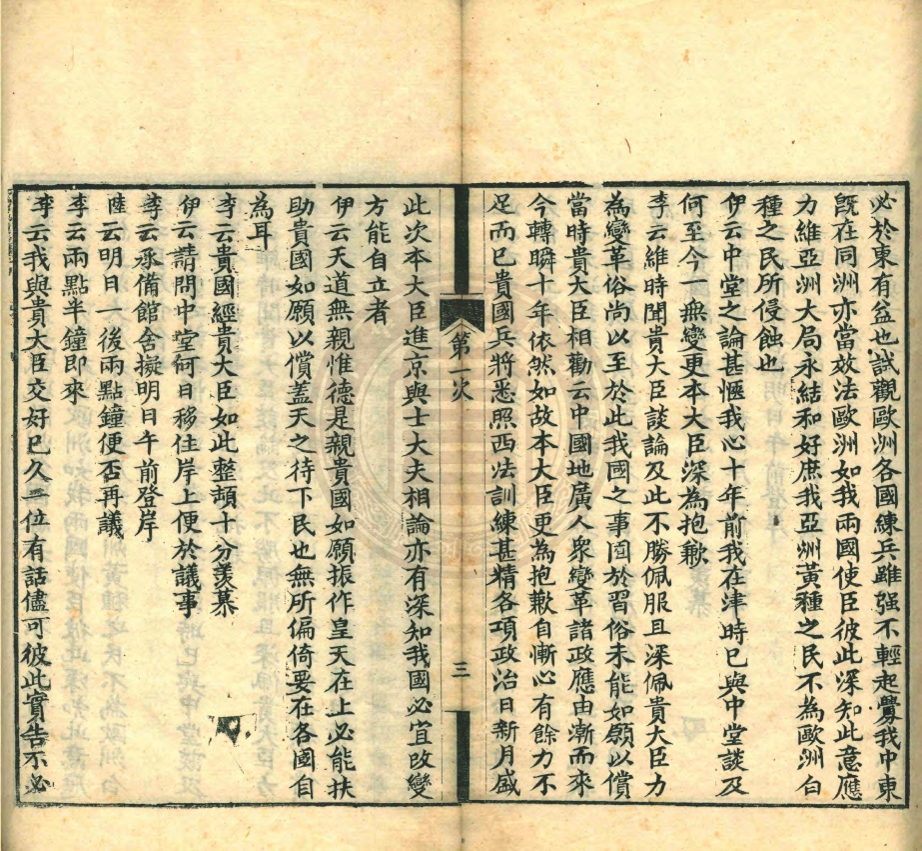 必於東有益也試觀歐洲各國練兵雖强不輕起釁我中東
既在同洲亦當效法歐洲如我兩國使臣彼此深知此意應
力維亞洲大局永結和好庶我亞州黃種之民不為歐洲白
種之民所侵蝕也
伊云中堂之論甚愜我心十年前我在津時已與中堂談及
何至今一無變更本大臣深為抱歉
李云維時聞貴大臣談論及此不勝佩服且深佩貴大臣力
為變革俗尚以至於此我國之事囿於習俗未能如願以償
當時貴大臣相勸云中國地廣人衆變革諸政應由漸而來
今轉瞬十年依然如故本大臣更為抱歉自慚心有餘力不
足而已貴國兵將悉照西法訓練甚精各項政治日新月盛
第一次
三
此次本大臣進京與士大夫相論亦有深知我國必宜改變
方能自立者
伊云天道無親惟德是親貴國如願振作皇天在上必能扶
助貴國如願以償蓋天之待下民也無所偏倚要在各國自
為耳
李云貴國經貴大臣如此整頓十分羨慕
伊云請問中堂何日移住岸上便於議事
李云承備館舍擬明日午前登岸
陸云明日一後兩點鐘便否再議
李云兩點半鐘即來
李云我與貴大臣交好已久二位有話儘可彼此實告不必